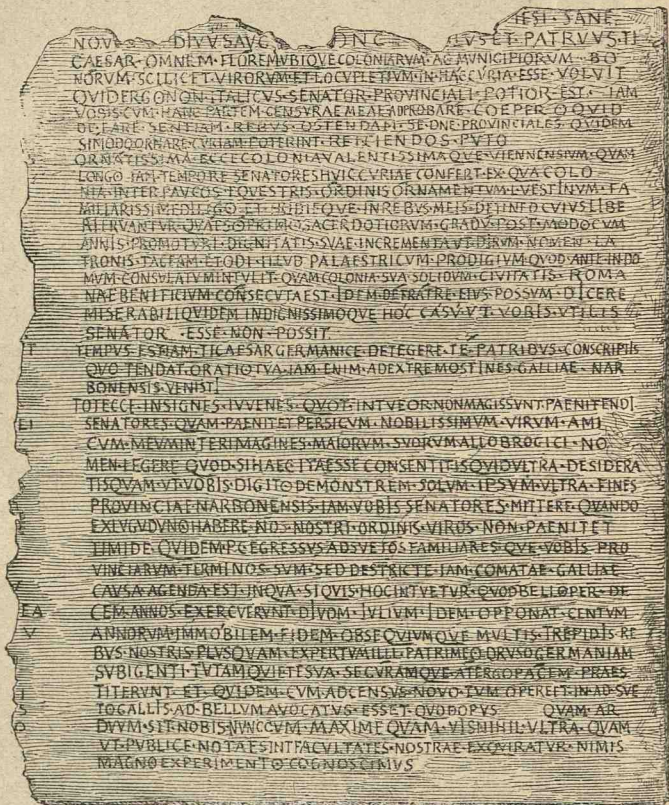 IESI · SANE
NOVO DIVVS AVG ONC LVS ET PATRVVS TI
CAESAR · OMNEM · FLOREM VBIQVE COLONIARVM · AC MVNICIPIORVM · BO
NORVM · SCILICET VIRORVM ET LOCVPLETIVM · IN · HAC CVRIA · ESSE · VOLVIT
QVID ERGO NON · ITALICVS · SENATOR · PROVINCIALI · POTIOR · EST · IAM
VOBIS CVM · HANC PARTEM CENSVRAE MEAE ADPROBARE · COEPERO QVID
DE EA RE · SENTIAM · REBVS · OSTENDAM SED NE PROVINCIALES QVIDEM
SI MODO ORNARE CVRIAM POTERINT · REICIENDOS · PVTO
ORNATISSIMA · ECCE COLONIA VALENTISSIMAQVE VIENNENSIVM · QVAM
LONGO · IAM · TEMPORE SENATORES HVIC CVRIAE CONFERT · EX QVA COLO
NIA · INTER PAVCOS · EQVESTRIS · ORDINIS ORNAMENTVM L · VESTINVM · FA
MILIARISSIME DILIGO · ET · HODIEQVE · IN REBVS · MEIS · DETINEO CVIVS LIBE
RI FRVANTVR QVAESO PRIMO SACERDOTIORVM · GRADV · POST · MODO CVM
ANNIS PROMOTVRI · DIGNITATIS SVAE INCREMENTA VT DIRVM NOMEN · LA
TRONIS · TACEAM · ET ODI · ILLVD PALAESTRICVM · PRODIGIVM QVOD ANTE IN DO
MVM · CONSVLATVM INTVLIT · QVAM COLONIA SVA SOLIDVM · CIVITATIS · ROMA
NAE BENIFICIVM CONSECVTA EST · IDEM DE FRATRE EIVS POSSVM DICERE
MISERABILI QVIDEM INDIGNISSIMOQVE HOC CASV VT VOBIS VTILIS
SENATOR ESSE · NON · POSSIT
T TEMPVS EST IAM · TI CAESAR GERMANICE DETEGERE TE PATRIBVS CONSCRIPTIS
QVO TENDAT · ORATIO TVA · IAM ENIM · AD EXTREMOS FINES GALLIAE · NAR
BONENSIS VENISTI
TOT ECCE · INSIGNES · IVVENES · QVOT · INTVEOR · NON MAGIS SVNT · PAENITENDI
EI SENATORES · QVAM · PAENITET PERSICVM · NOBILISSIMVM · VIRVM · AMI
CVM · MEVM INTER IMAGINES · MAIORVM · SVORVM ALLOBROGICI · NO
MEN · LEGERE QVOD · SI HAEC ITA ESSE CONSENTITIS QVID VLTRA · DESIDERA
TIS QVAM · VT · VOBIS · DIGITO DEMONSTREM · SOLVM · IPSVM · VLTRA · FINES
PROVINCIAE · NARBONENSIS · IAM · VOBIS · SENATORES · MITTERE · QVANDO
EX LVGVDVNO HABERE · NOS · NOSTRI · ORDINIS · VIROS · NON · PAENITET
TIMIDE · QVIDEM · P C EGRESSVS AD SVETOS FAMILIARES QVE · VOBIS PRO
VINCIARVM · TERMINOS · SVM · SED DESTRICTE · IAM · COMATAE · GALLIAE
CAVSA · AGENDA · EST · IN QVA · SI QVIS · HOC INTVETVR · QVOD BELLO PER · DE
EA CEM · ANNOS · EXERCVERVNT · DIVOM · IVLIVM · IDEM · OPPONAT · CENTVM
V ANNORVM · IMMOBILEM · FIDEM · OBSEQVIVMQVE · MVLTIS · TREPIDIS RE
BVS NOSTRIS · PLVS QVAM · EXPERTVM ILLI · PATRI MEO · DRVSO GERMANIAM
SVBIGENTI · TVTAM QVIETE SVA · SECVRAMQVE · A TERGO PACEM · PRAES
TITERVNT · ET · QVIDEM · CVM · AD CENSVS · NOVO · TVM OPERE ET · IN AD SVE
TO GALLIS · AD · BELLVM AVOCATVS · ESSET · QVOD OPVS QVAM · AR
DVVM · SIT · NOBIS · NVNC CVM · MAXIME QVAM · VIS NIHIL · VLTRA · QVAM
VT · PVBLICE · NOTAE SINT FACVLTATES · NOSTRAE · EXQVIRATVR · NIMIS
MAGNO EXPERIMENTO COGNOSCIMVS